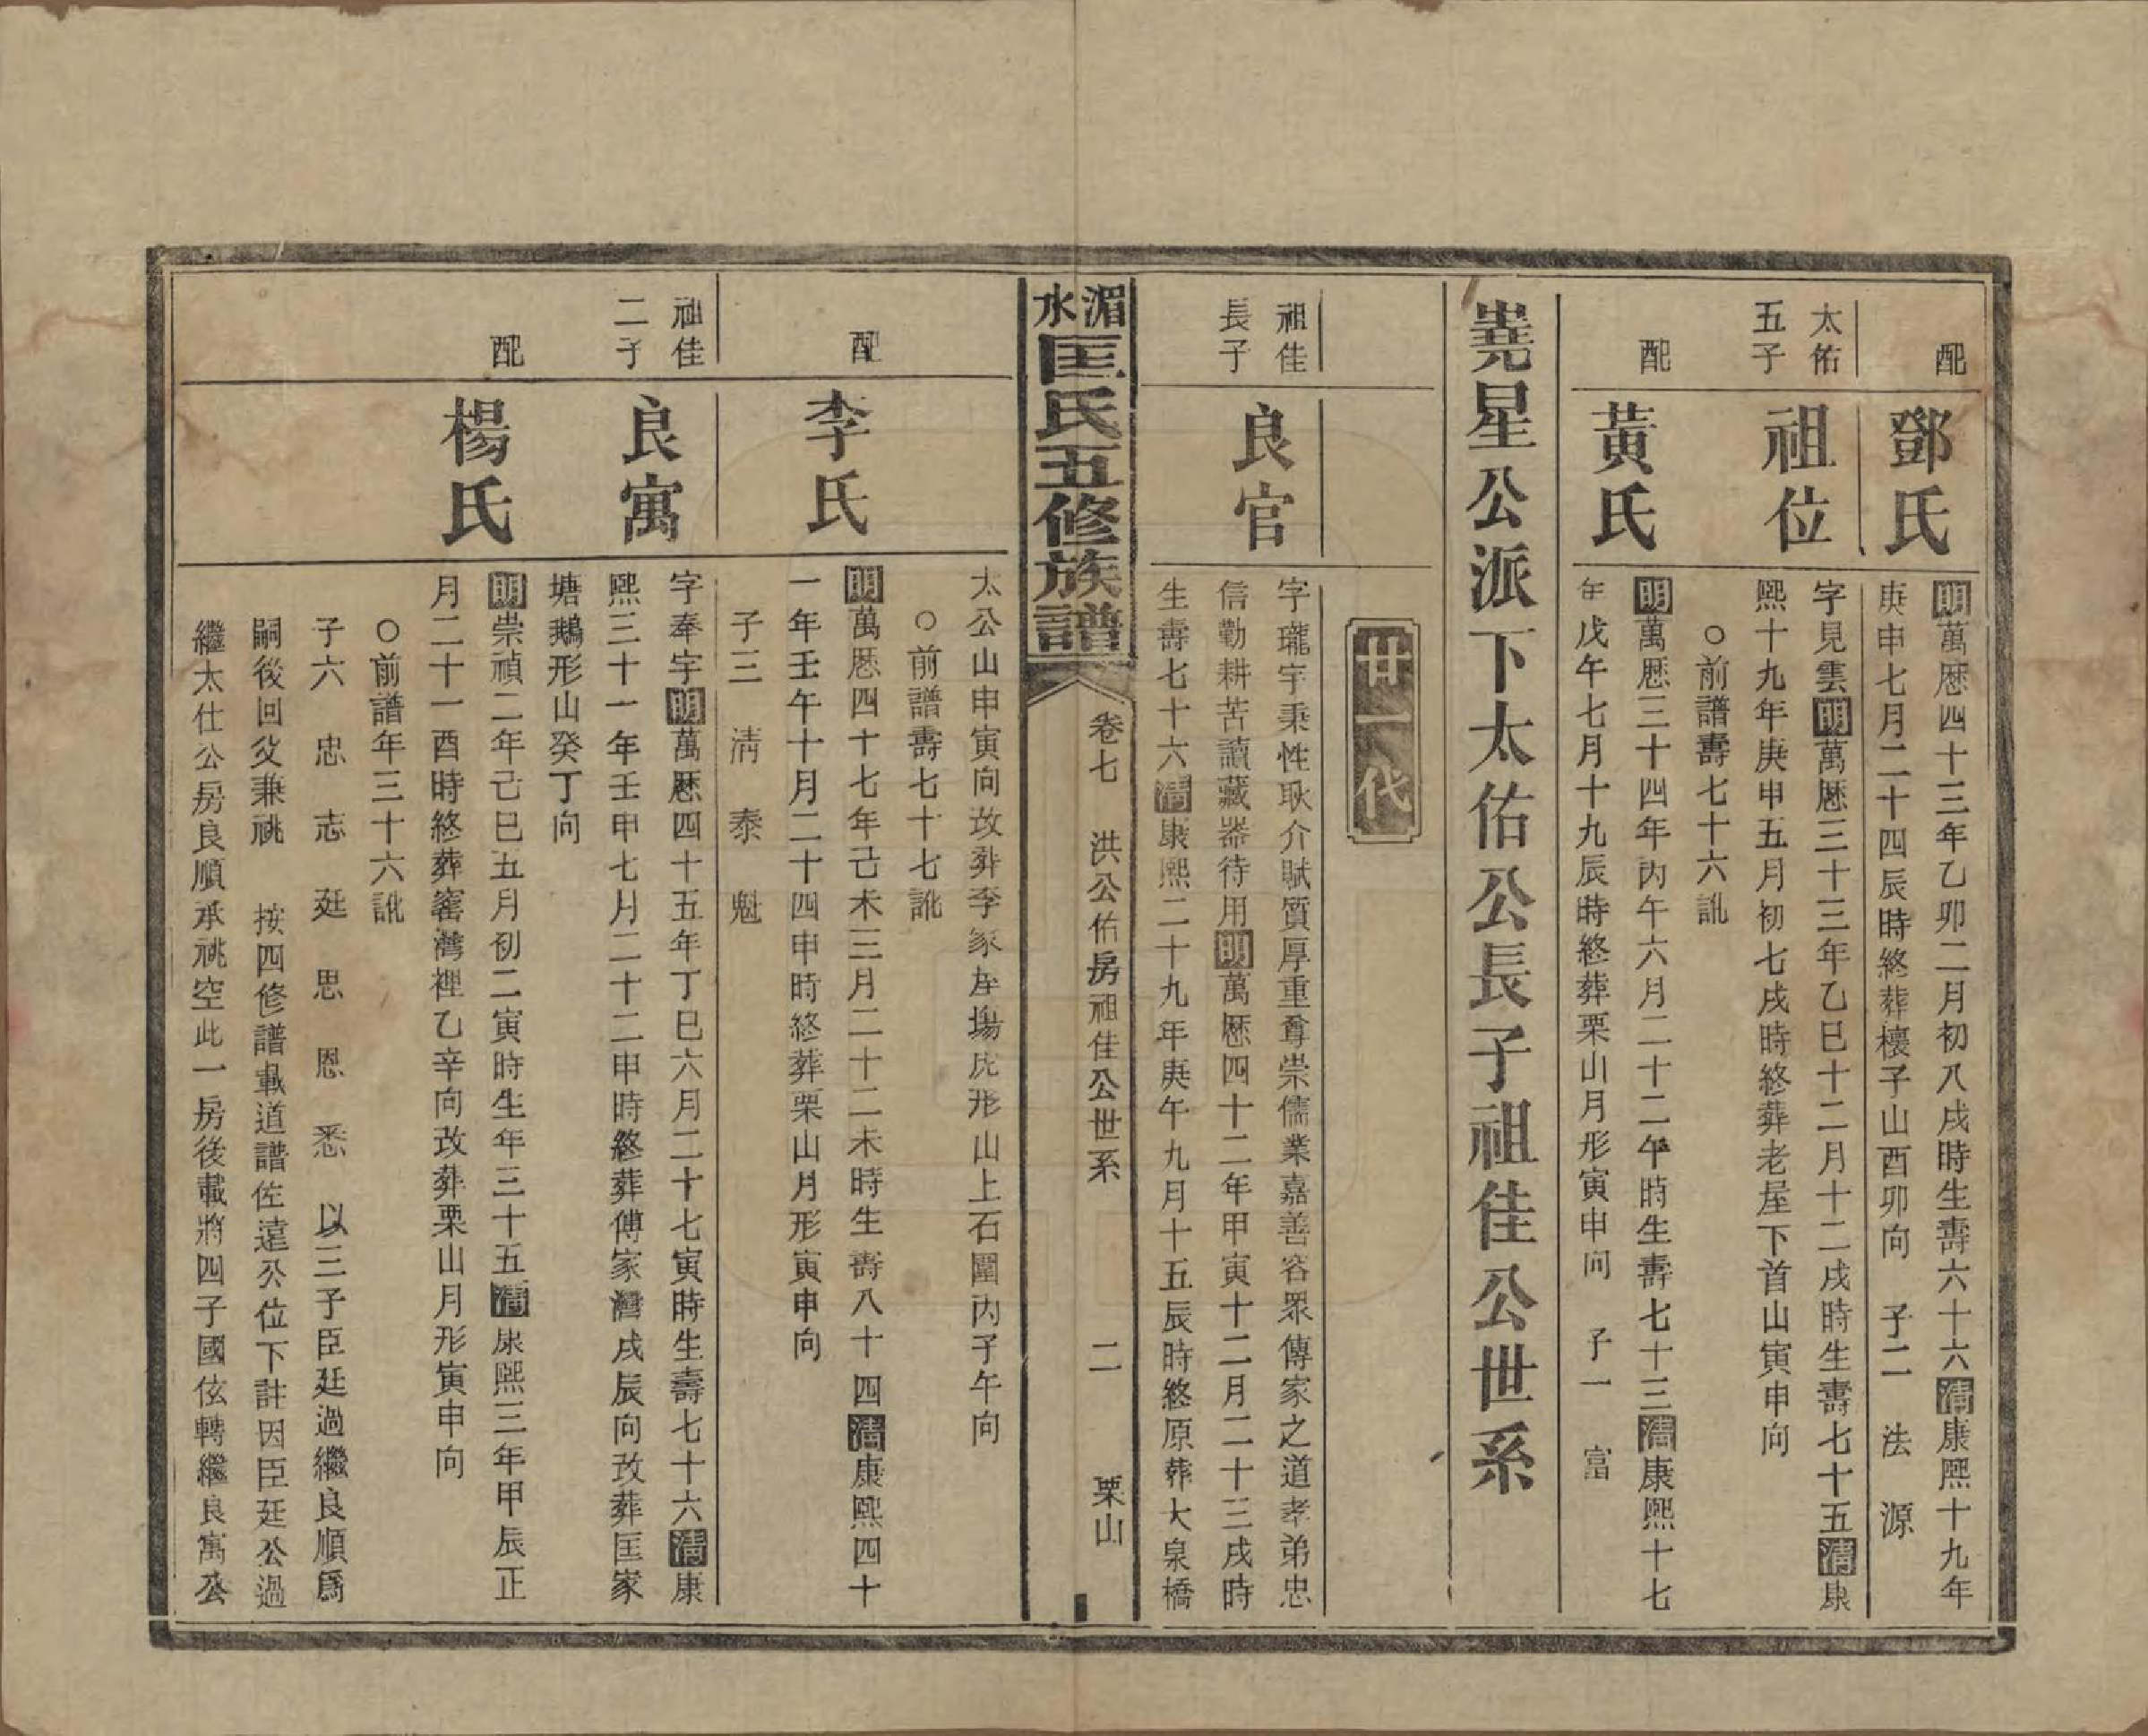 配
鄧氏
明萬歷四十三年乙卯二月初八戌時生壽六十六清康熙十九年
庚申七月二十四辰時終葬櫰子山酉卯向　子二　法　源
太佑
五子
祖位
字見雲明萬歷三十三年乙巳十二月十二戌時生壽七十五清康
熙十九年庚申五月初七戌時終葬老屋下首山寅申向
○前譜壽七十六訛
配
黃氏
明萬歷三十四年丙午六月二十二午時生壽七十三清康熙十七
年戊午七月十九辰時終葬栗山月形寅申向　子一　富
堯星公派下太佑公長子祖佳公世系
廿一代
祖佳
長子
良官
字瓏宇秉性耿介賦質厚重尊崇儒業嘉善容眾傳家之道孝弟忠
信勤耕苦讀藏器待用明萬歷四十二年甲寅十二月二十三戌時
生壽七十六清康熙二十九年庚午九月十五辰時終原葬大泉橋
湄水匡氏五修族譜
卷七　洪公佑房祖佳公世系　二　栗山
太公山申寅向改葬李家㘴塲虎形山上石圍丙子午向
○前譜壽七十七訛
配
李氏
明萬歷四十七年己未三月二十二未時生壽八十四清康熙四十
一年壬午十月二十四申時終葬栗山月形寅申向
子三　清　泰　魁
祖佳
二子
良寓
字奉宇明萬歷四十五年丁巳六月二十七寅時生壽七十六清康
熙三十一年壬申七月二十二申時終葬傅家灣戌辰向改葬匡家
塘鵝形山癸丁向
配
楊氏
明崇禎二年己巳五月初二寅時生年三十五清康熙三年甲辰正
月二十一酉時終葬窰灣裡乙辛向改葬栗山月形寅申向
○前譜年三十六訛
子六　忠　志　廷　思　恩　悉　以三子臣廷過繼良順爲
嗣後回父兼祧　按四修譜載道譜佐遠公位下註因臣廷公過
繼太仕公房良順承祧空此一房後載將四子國伭轉繼良寓公